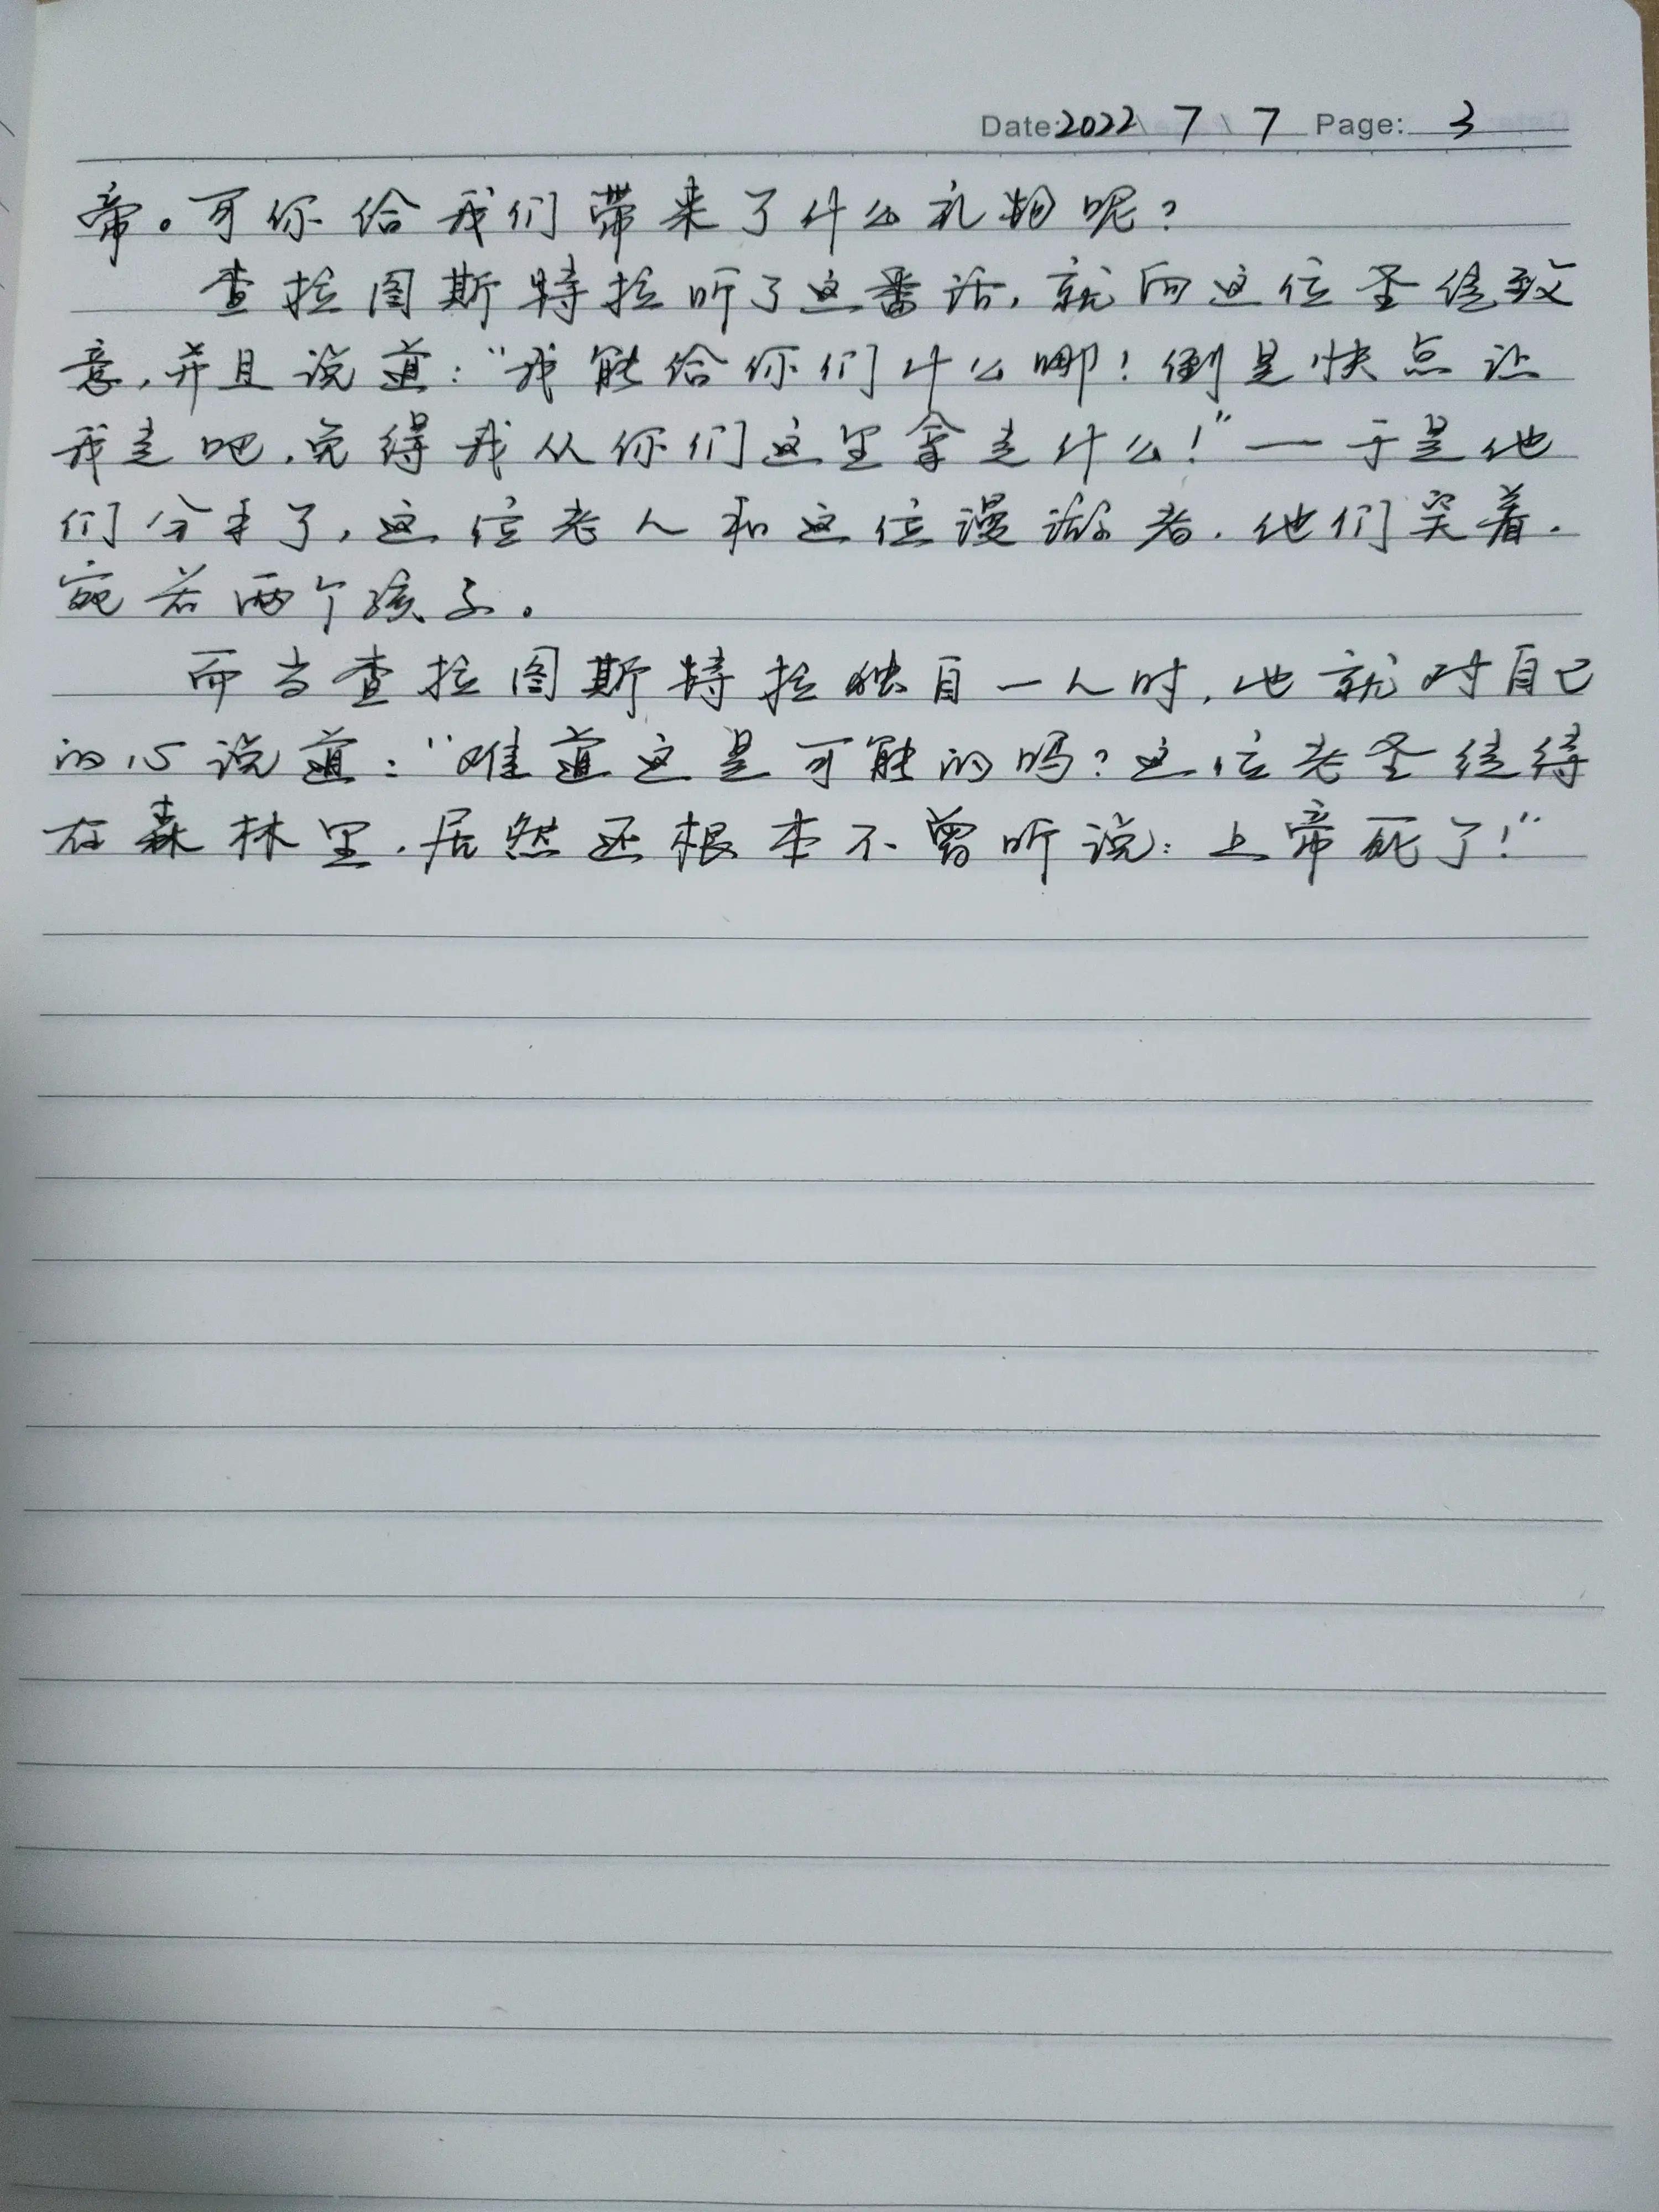 Date: 2022 \ 7 \ 7 Page: 3
帝。可你给我们带来了什么礼物呢？
查拉图斯特拉听了这番话，就向这位圣徒致
意，并且说道：“我能给你们什么哪！倒是快点让
我走吧，免得我从你们这里拿走什么！”—于是他
们分手了，这位老人和这位漫游者，他们笑着，
宛若两个孩子。
而当查拉图斯特拉独自一人时，他就对自己
的心说道：“难道这是可能的吗？这位老圣徒待
在森林里，居然还根本不曾听说：上帝死了！”